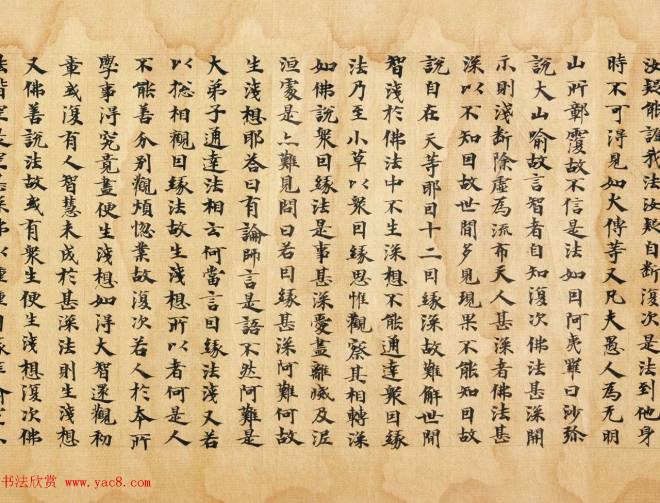 汝疑能說我法汝疑自斷復次是法到他身
時不可得見如大傅等又凡夫愚人為无明
山所鄣覆故不信是法如因阿夷羅曰沙弥
說大山喻故言智者自知復次佛法甚深開
示則淺斷除虛為流布天人甚深者佛法甚
深以不知因故世間多見現果不能知因故
說自在天等耶因十二因緣深故難解世間
智淺於佛法中不生深想不能通達衆因緣
法乃至小草以衆因緣思惟觀察其相轉深
如佛說衆因緣法是事甚深愛盡離滅及泥
洹處是亦難見問曰若因緣甚深阿難何故
生淺想耶荅曰有論師言是語不然阿難是
大弟子通達法相云何當言因緣法淺又若
以揔相觀因緣法故生淺想所以者何是人
不能善分別觀煩惚業故復次若人於本所
學事得究竟盡便生淺想如得大智還觀初
章或復有人智慧未成於甚深法則生淺想
又佛善說法故或有衆生便生淺想復次佛
法皆空是空甚深佛以種種因緣
书法欣赏 www.yac8.com